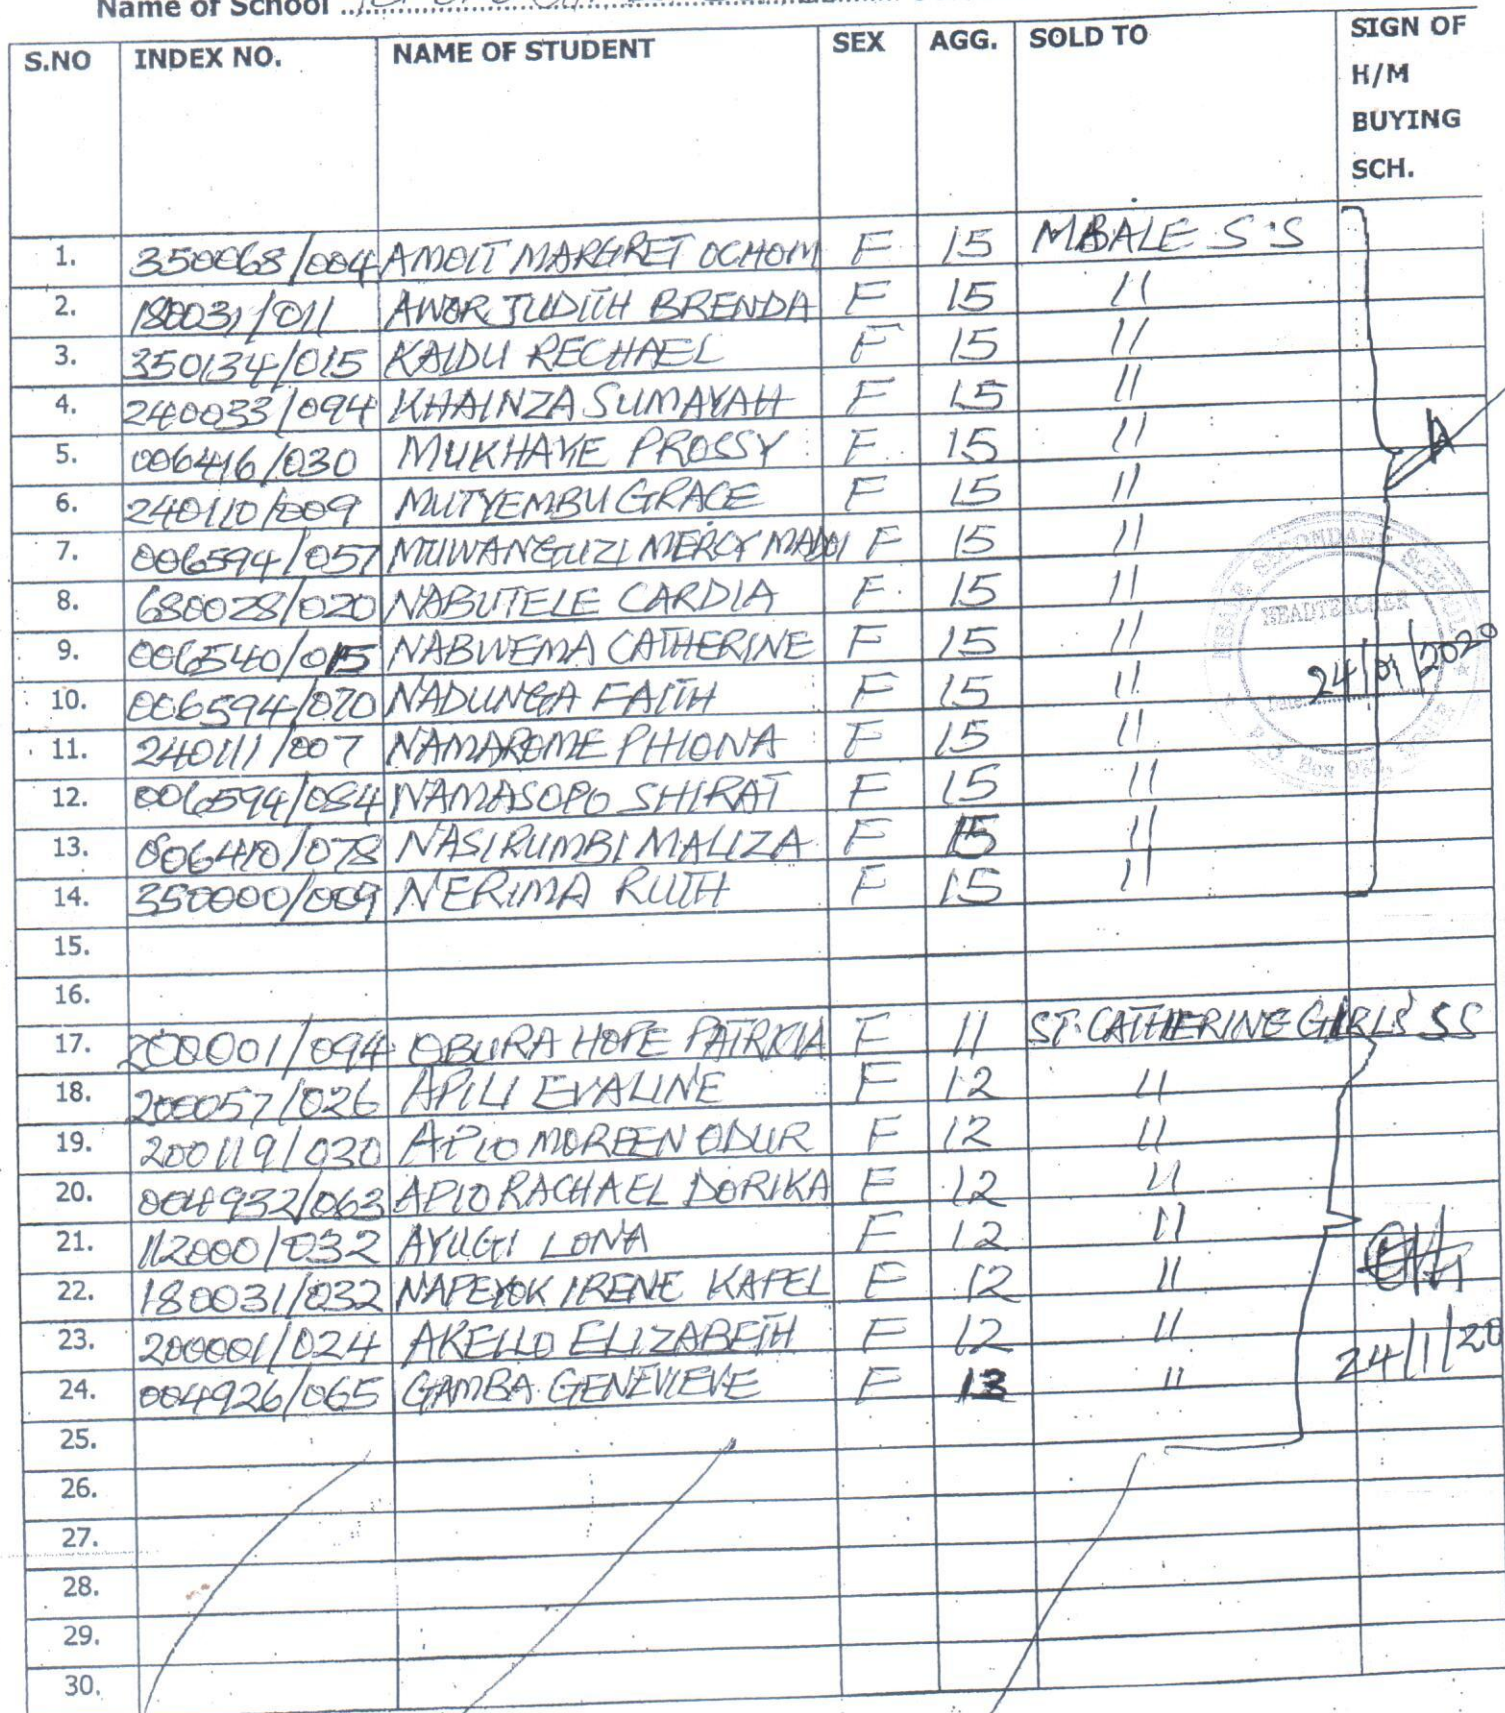 Name of School
S.NO INDEX NO. NAME OF STUDENT SEX AGG. SOLD TO SIGN OF H/M BUYING SCH.
1. 350068/004 AMOIT MARGRET OCHOM F 15 MBALE S.S
2. 180031/011 AWOR JUDITH BRENDA F 15 11
3. 350134/015 KAIDU RECHAEL F 15 11
4. 240033/094 KHAINZA SUMAYAH F 15 11
5. 006416/030 MUKHAYE PROSSY F 15 11
6. 240110/009 MUTYEMBU GRACE F 15 11
7. 006594/057 MUWANGUZI MERCY F 15 11
8. 680028/020 NABUTELE CARDIA F 15 11
9. 006540/015 NABWEMA CATHERINE F 15 11
10. 006594/070 NADUNGA FAITH F 15 11
11. 240111/007 NAMAROME PHIONA F 15 11
12. 006594/084 NAMASOPO SHIRAT F 15 11
13. 006410/078 NASIRUMBI MALIZA F 15 11
14. 350000/009 NERIMA RUTH F 15 11
SECONDARY SCHOOL
HEADTEACHER
24/01/2020
Date
P.O. Box
15.
16.
17. 200001/094 OBURA HOPE PATRICIA F 11 ST. CATHERINE GIRLS' SS
18. 200057/026 APILI EVALINE F 12 11
19. 200119/030 APIO MOREEN ODUR F 12 11
20. 004932/063 APIO RACHAEL DORIKA F 12 11
21. 112000/032 AYUGI LONA F 12 11
22. 180031/032 NAPEYOK IRENE KAPEL F 12 11
23. 200001/024 AKELLO ELIZABETH F 12 11
24/1/20
24. 004926/065 GAMBA GENEVIEVE F 13 11
25.
26.
27.
28.
29.
30.